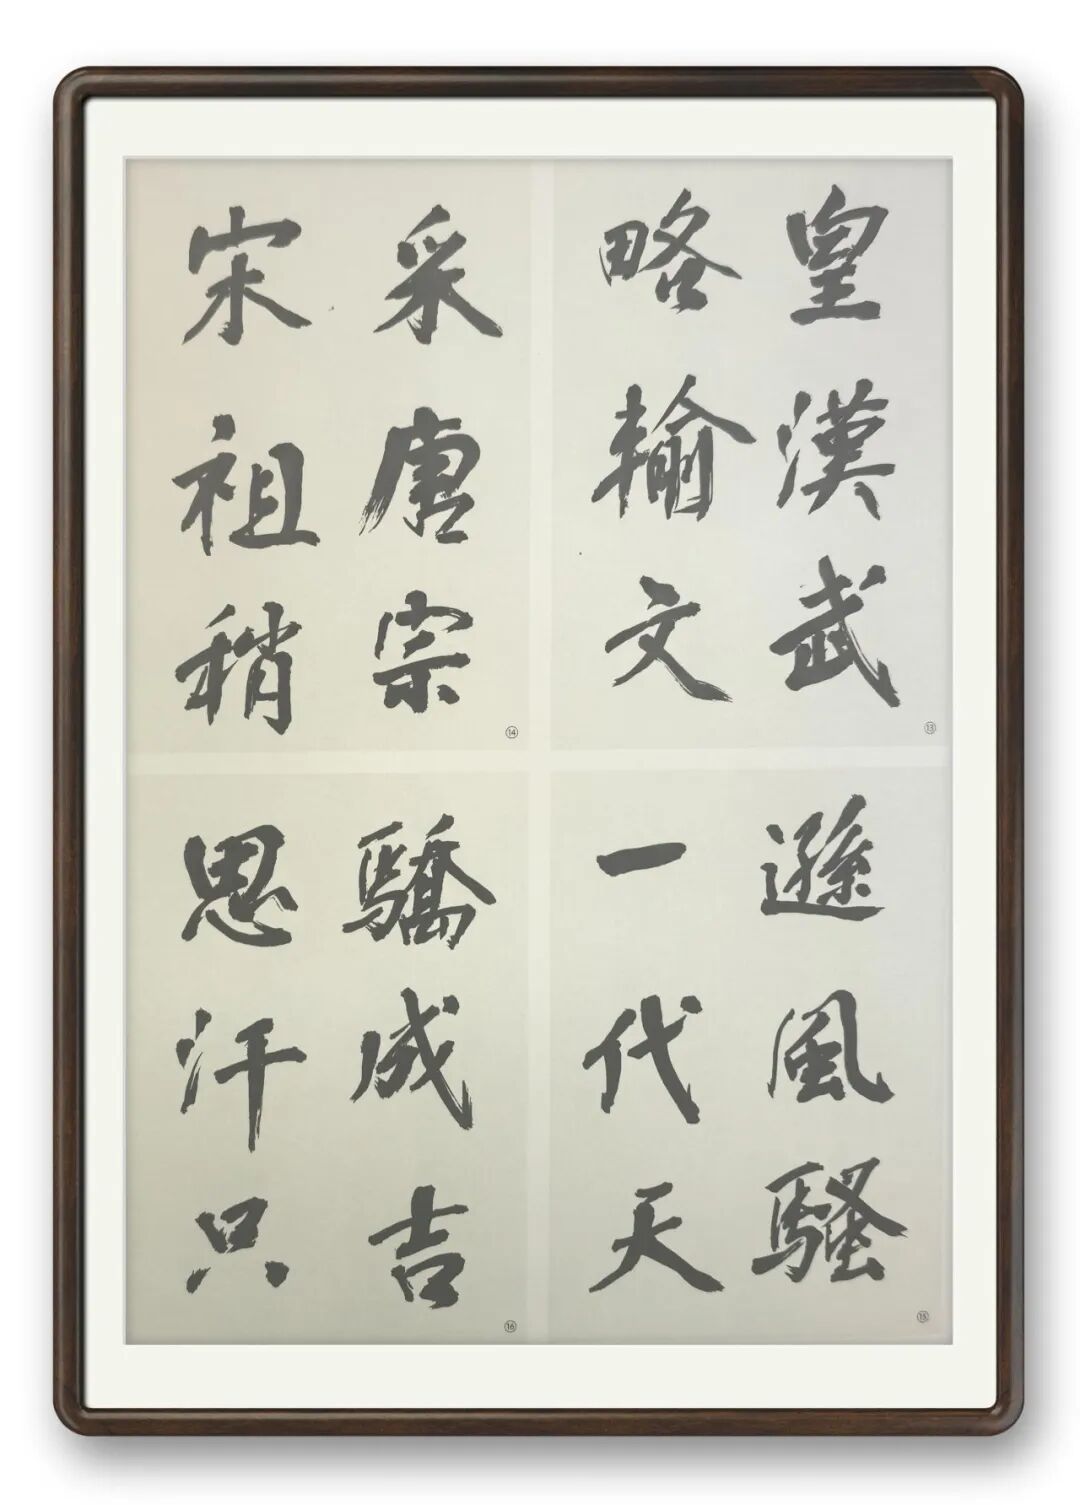 皇漢武
略輸文
⑬
采唐宗
宋祖稍
⑭
遜風騷
一代天
⑮
驕成吉
思汗只
⑯